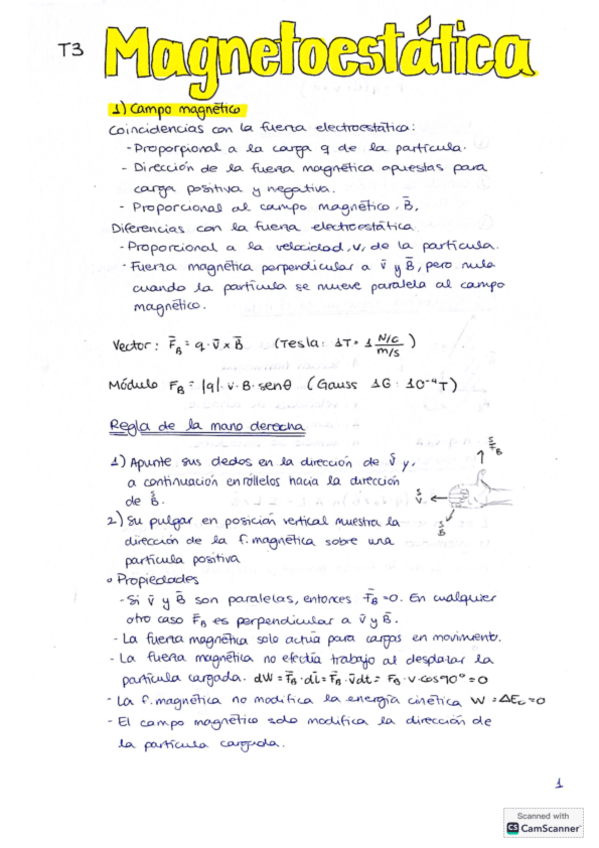 T3 Magnetoestática
1) Campo magnético
Coincidencias con la fuerza electroestática:
- Proporpional a la carga q de la partícula.
- Dirección de la fuerza magnética opuestas para
carga positiva y negativa.
- Proporcional al campo magnético, B̄,
Diferencias con la fuerza electroestática
- Proporcional a la velocidad, v, de la partícula.
- Fuerza magnética perpendicular a v̄ y B̄, pero nula
cuando la partícula se mueve paralela al campo
magnético.
Vector: F̄_B = q · v̄ × B̄ (Tesla: 1T = 1 (N/C)/(m/s))
Módulo F_B = |q| · v · B · senθ (Gauss 1G : 10⁻⁴T)
Regla de la mano derecha
1) Apunte sus dedos en la dirección de v̄ y,
a continuación enróllelos hacia la dirección
de B̄.
F_B
v
B
2) Su pulgar en posición vertical muestra la
dirección de la f. magnética sobre una
partícula positiva
• Propiedades
- Si v̄ y B̄ son paralelas, entonces F̄_B = 0. En cualquier
otro caso F̄_B es perpendicular a v̄ y B̄.
- La fuerza magnética solo actúa para cargas en movimiento.
- La fuerza magnética no efectúa trabajo al desplazar la
partícula cargada. dW = F̄_B · dl̄ = F̄_B · v̄dt = F_B · v · cos90° = 0
- La f. magnética no modifica la energía cinética W = ΔE_c = 0
- El campo magnético solo modifica la dirección de
la partícula cargada.
1
Scanned with
CS CamScanner